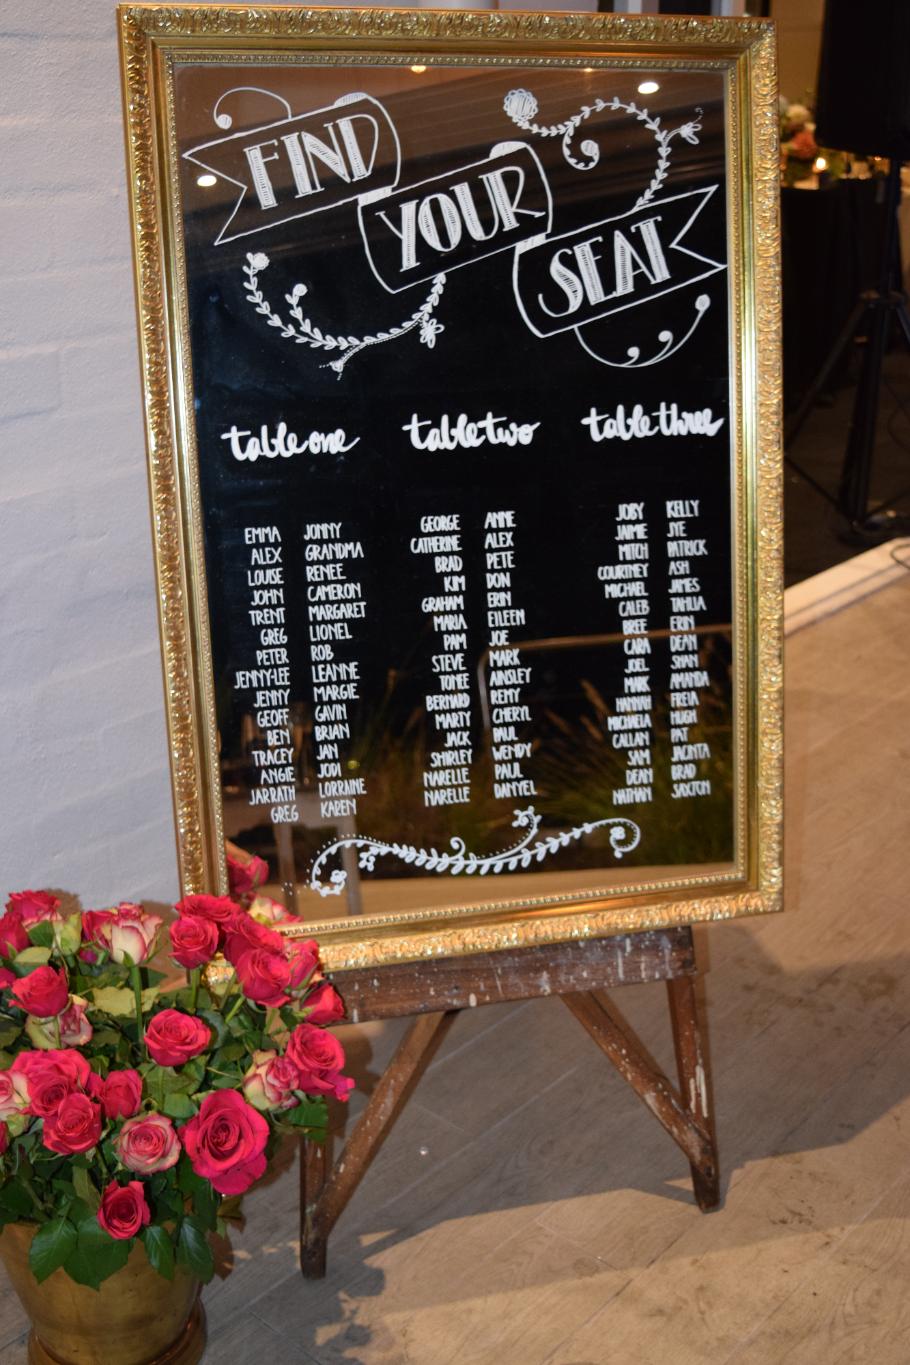 FIND
YOUR
SEAT
table one
EMMA JONNY
ALEX GRANDMA
LOUISE RENEE
JOHN CAMERON
TRENT MARGARET
GREG LIONEL
PETER ROB
JENNY-LEE LEANNE
JENNY MARGIE
GEOFF GAVIN
BEN BRIAN
TRACEY JAN
ANGIE JODI
JARRATH LORRAINE
GREG KAREN
table two
GEORGE ANNE
CATHERINE ALEX
BRAD PETE
KIM DON
GRAHAM ERIN
MARIA EILEEN
PAM JOE
STEVE MARK
TONEE AINSLEY
BERNARD REMY
MARTY CHERYL
JACK PAUL
SHIRLEY WENDY
NARELLE PAUL
NARELLE DANYEL
table three
JOBY KELLY
JAIME JYE
MITCH PATRICK
COURTNEY ASH
MICHAEL JAMES
CALEB TAHLIA
BREE ERIN
CARA DEAN
JOEL SHAN
MARK AMANDA
HANNAH FREIA
MICHAELA HUGH
CALLAN PAT
SAM JACINTA
DEAN BRAD
NATHAN SAXTON